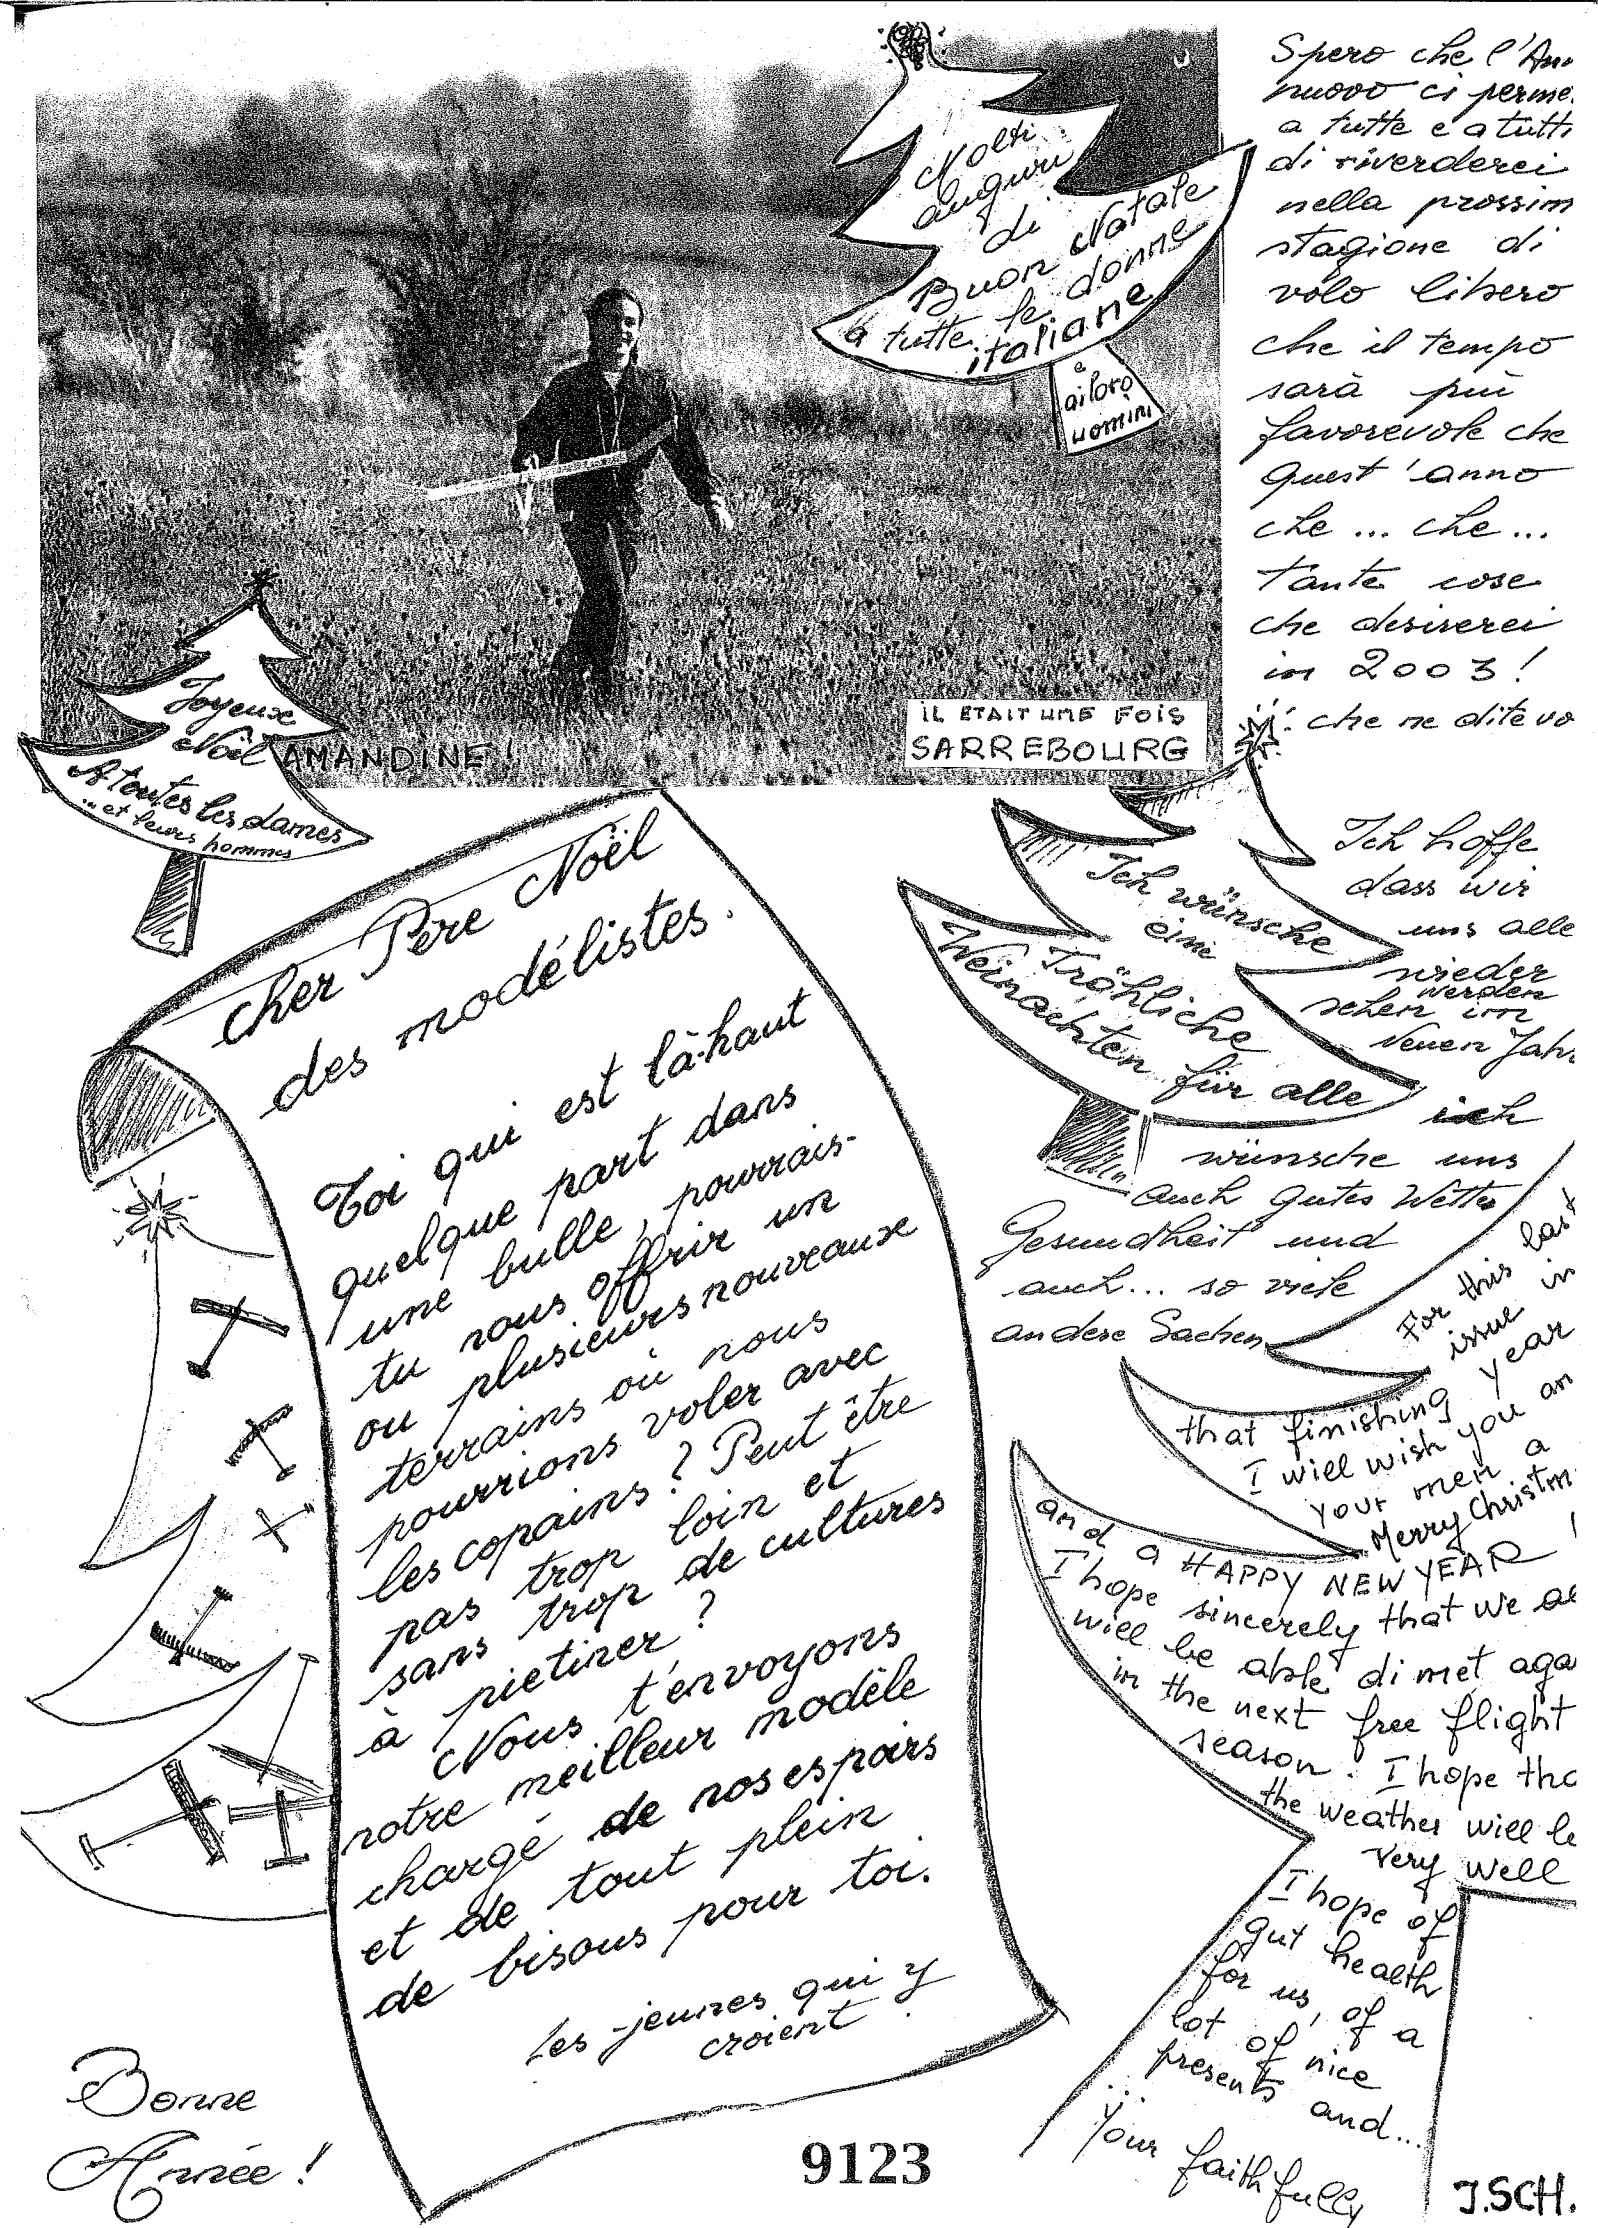 Molti
auguri
di
Buon Natale
a tutte le donne
italiane
e
ai loro
uomini
Spero che l'An
nuovo ci perme
a tutte e a tutti
di riverderci
nella prossim
stagione di
volo libero
che il tempo
sarà più
favorevole che
quest'anno
che ... che ...
tante cose
che desiserei
in 2003 !
che ne dite vo
Joyeuse
Noël
A toutes les dames
... et leurs hommes
AMANDINE !
IL ETAIT UNE FOIS
SARREBOURG
cher Père Noël
des modélistes.
Toi qui est là-haut
quelque part dans
une bulle, pourrais-
tu nous offrir un
ou plusieurs nouveaux
terrains où nous
pourrions voler avec
les copains ? Peut être
pas trop loin et
sans trop de cultures
à pietiner ?
Nous t'envoyons
notre meilleur modèle
chargé de nos espoirs
et de tout plein
de bisous pour toi.
Les jeunes qui y
croient !
Ich wünsche
eine
Fröhliche
Weinachten für alle
Ich hoffe
dass wir
uns alle
wieder
werden
sehen im
Neuen Jahr
ich
wünsche uns
auch gutes Wetter
Gesundheit und
auch... so viele
andere Sachen
For this last
issue in
year
that finishing
I will wish you an
your men a
Merry Christm
and a HAPPY NEW YEAR !
I hope sincerely that we
will be able di met aga
in the next free flight
season. I hope tha
the weather will be
very well
I hope of
gut health
for us, of a
lot of nice
presents and...
...
Your faithfully
Bonne
Année !
9123
J.SCH.